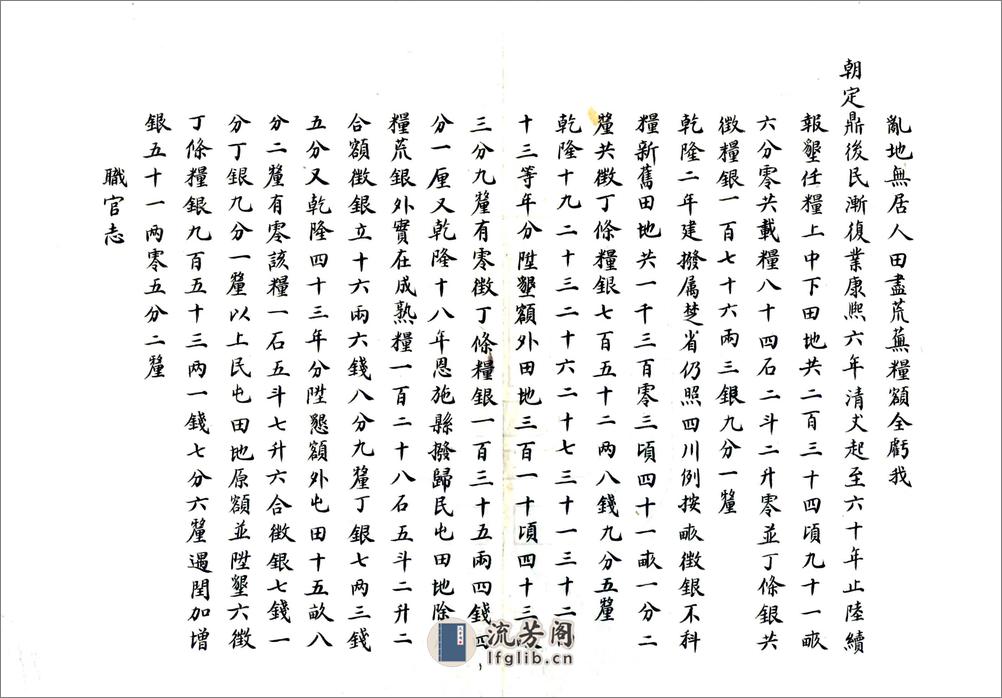 亂地無居人田盡荒蕪糧額全虧我
朝定鼎後民漸復業康熙六年清丈起至六十年止陸續
報墾任糧上中下田地共二百三十四頃九十一畝
六分零共載糧八十四石二斗二升零並丁條銀共
徵糧銀一百七十六兩三銀九分一釐
乾隆二年建撥属楚省仍照四川例按畝徵銀不科
糧新舊田地共一千三百零三頃四十一畝一分二
釐共徵丁條糧銀七百五十二两八錢九分五釐
乾隆十九二十三二十六二十七三十一三十二
十三等年分陞墾額外田地三百一十頃四十三
三分九釐有零徵丁條糧銀一百三十五兩四錢四
分一厘又乾隆十八年恩施縣撥歸民屯田地除
糧荒銀外實在成熟糧一百二十八石五斗二升二
合額徵銀立十六兩六錢八分九釐丁銀七两三錢
五分又乾隆四十三年分陞懇額外屯田十五畝八
分二釐有零該糧一石五斗七升六合徵銀七錢一
分丁銀九分一釐以上民屯田地原額並陞墾六徵
丁條糧銀九百五十三两一錢七分六釐遇閏加增
銀五十一两零五分二釐
職官志
流芳阁
lfglib.cn